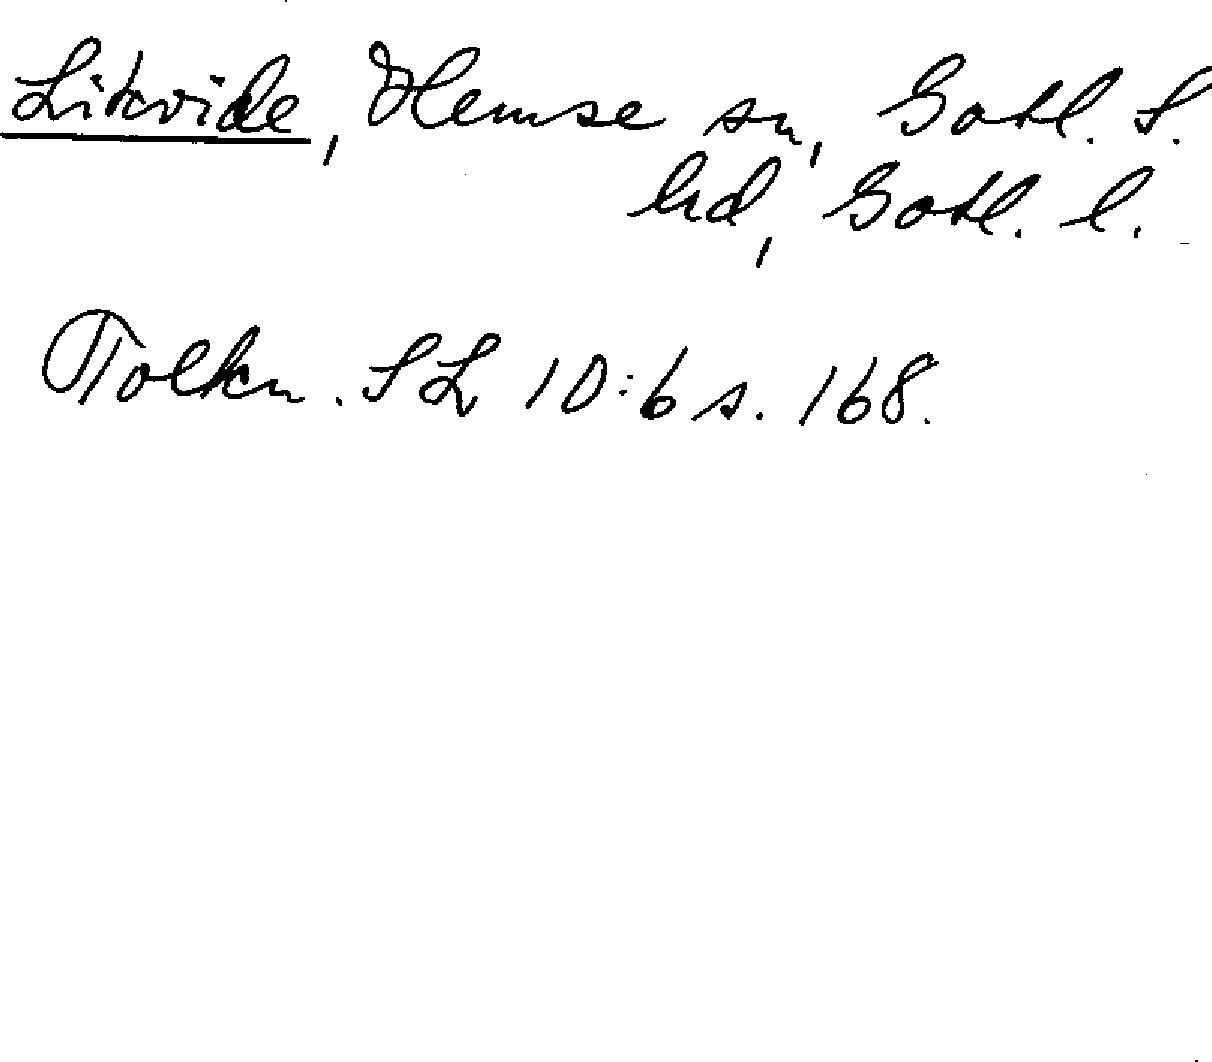 Likvide, Hemse sn, Gotl. S.
hd, Gotl. l.
Tolkn. SL 10:6 s. 168.